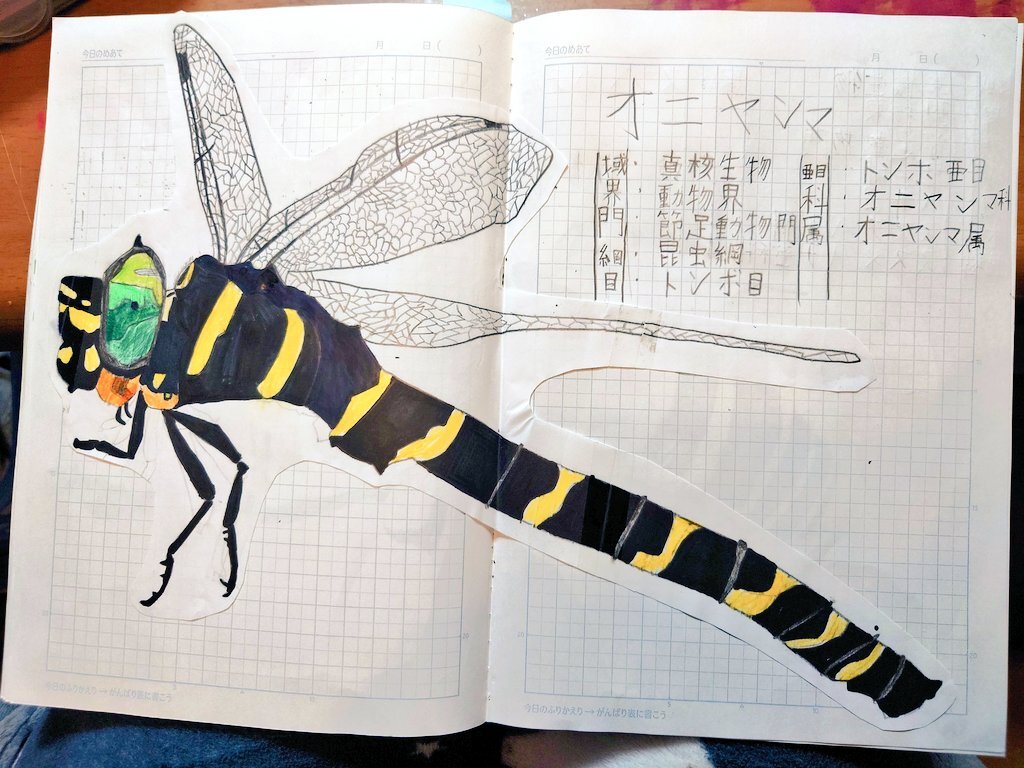 今日のめあて
月 日( )
今日のめあて
月 日( )
オニヤンマ
域・真核生物
界・動物界
門・節足動物門
綱・昆虫綱
目・トンボ目
亜目・トンボ亜目
科・オニヤンマ科
属・オニヤンマ属
20
20
今日のふりかえり→がんばり表に書こう
今日のふりかえり→がんばり表に書こう